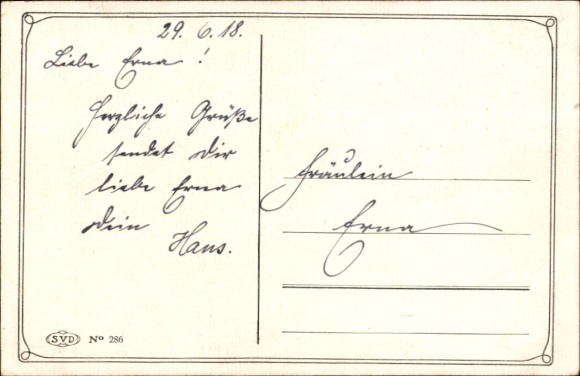 29. 6. 18.
Liebe Erna !
Herzliche Grüße
sendet Dir
liebe Erna
Dein
Hans.
Fräulein
Erna
SVD No 286